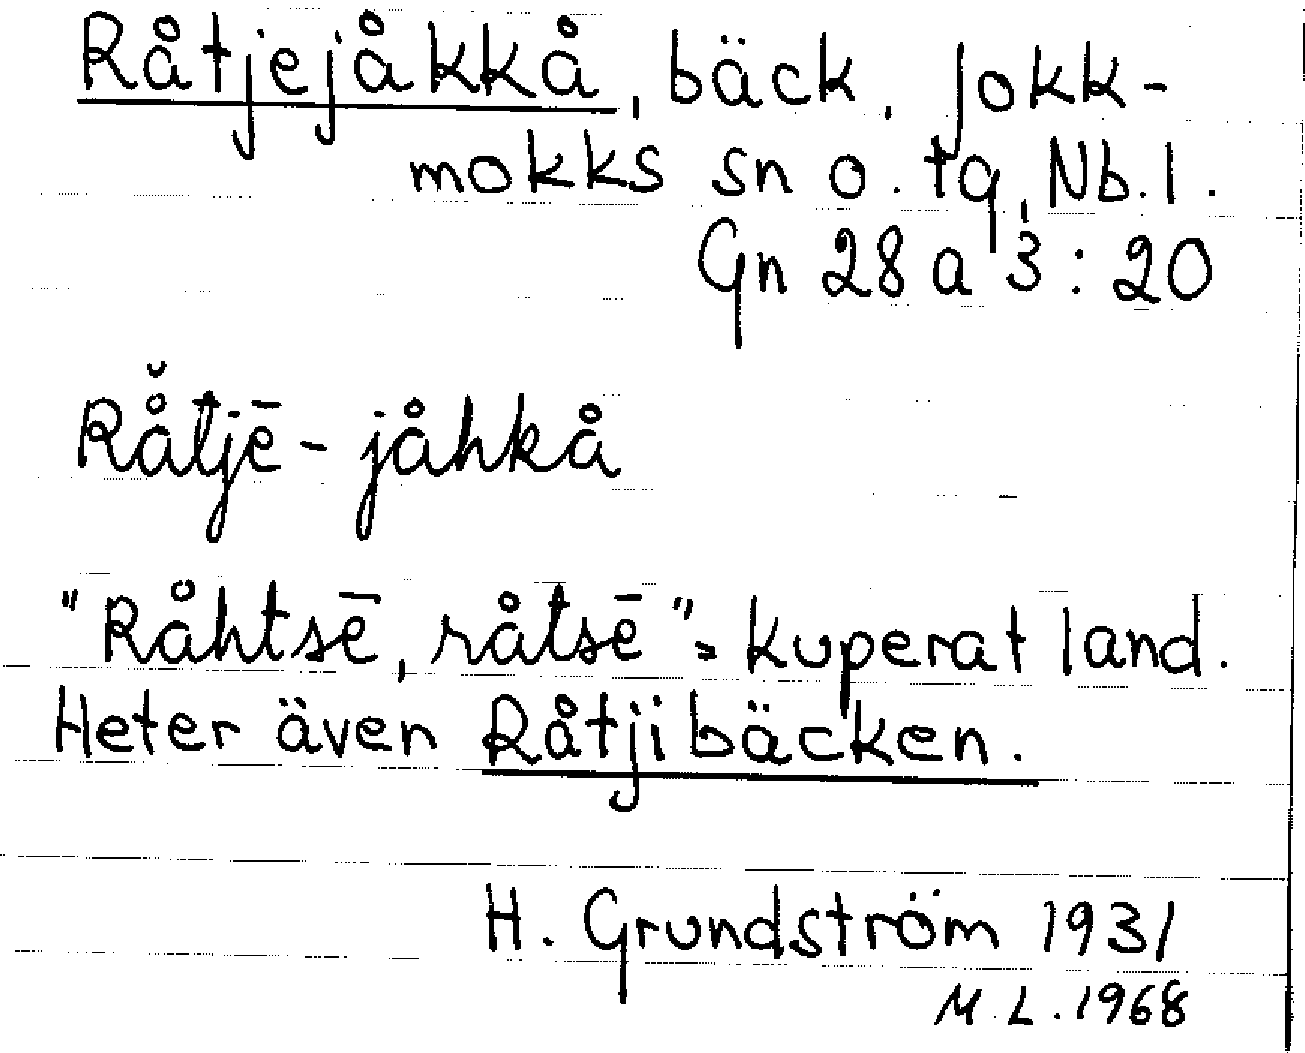 Råtjejåkkå, bäck, Jokk-
mokks sn o. tg, Nb. l.
Gn 28 a 3 : 20
Rå̆tjē - jåhkå
"Råhtsē, råtsē" = kuperat land.
Heter även Råtjibäcken.
H. Grundström 1931
M. L. 1968